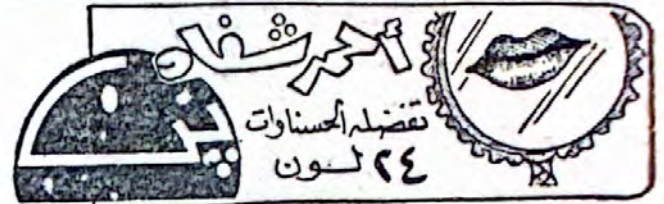 أحمر شفاه
تفضله الحسناوات
٢٤ لون